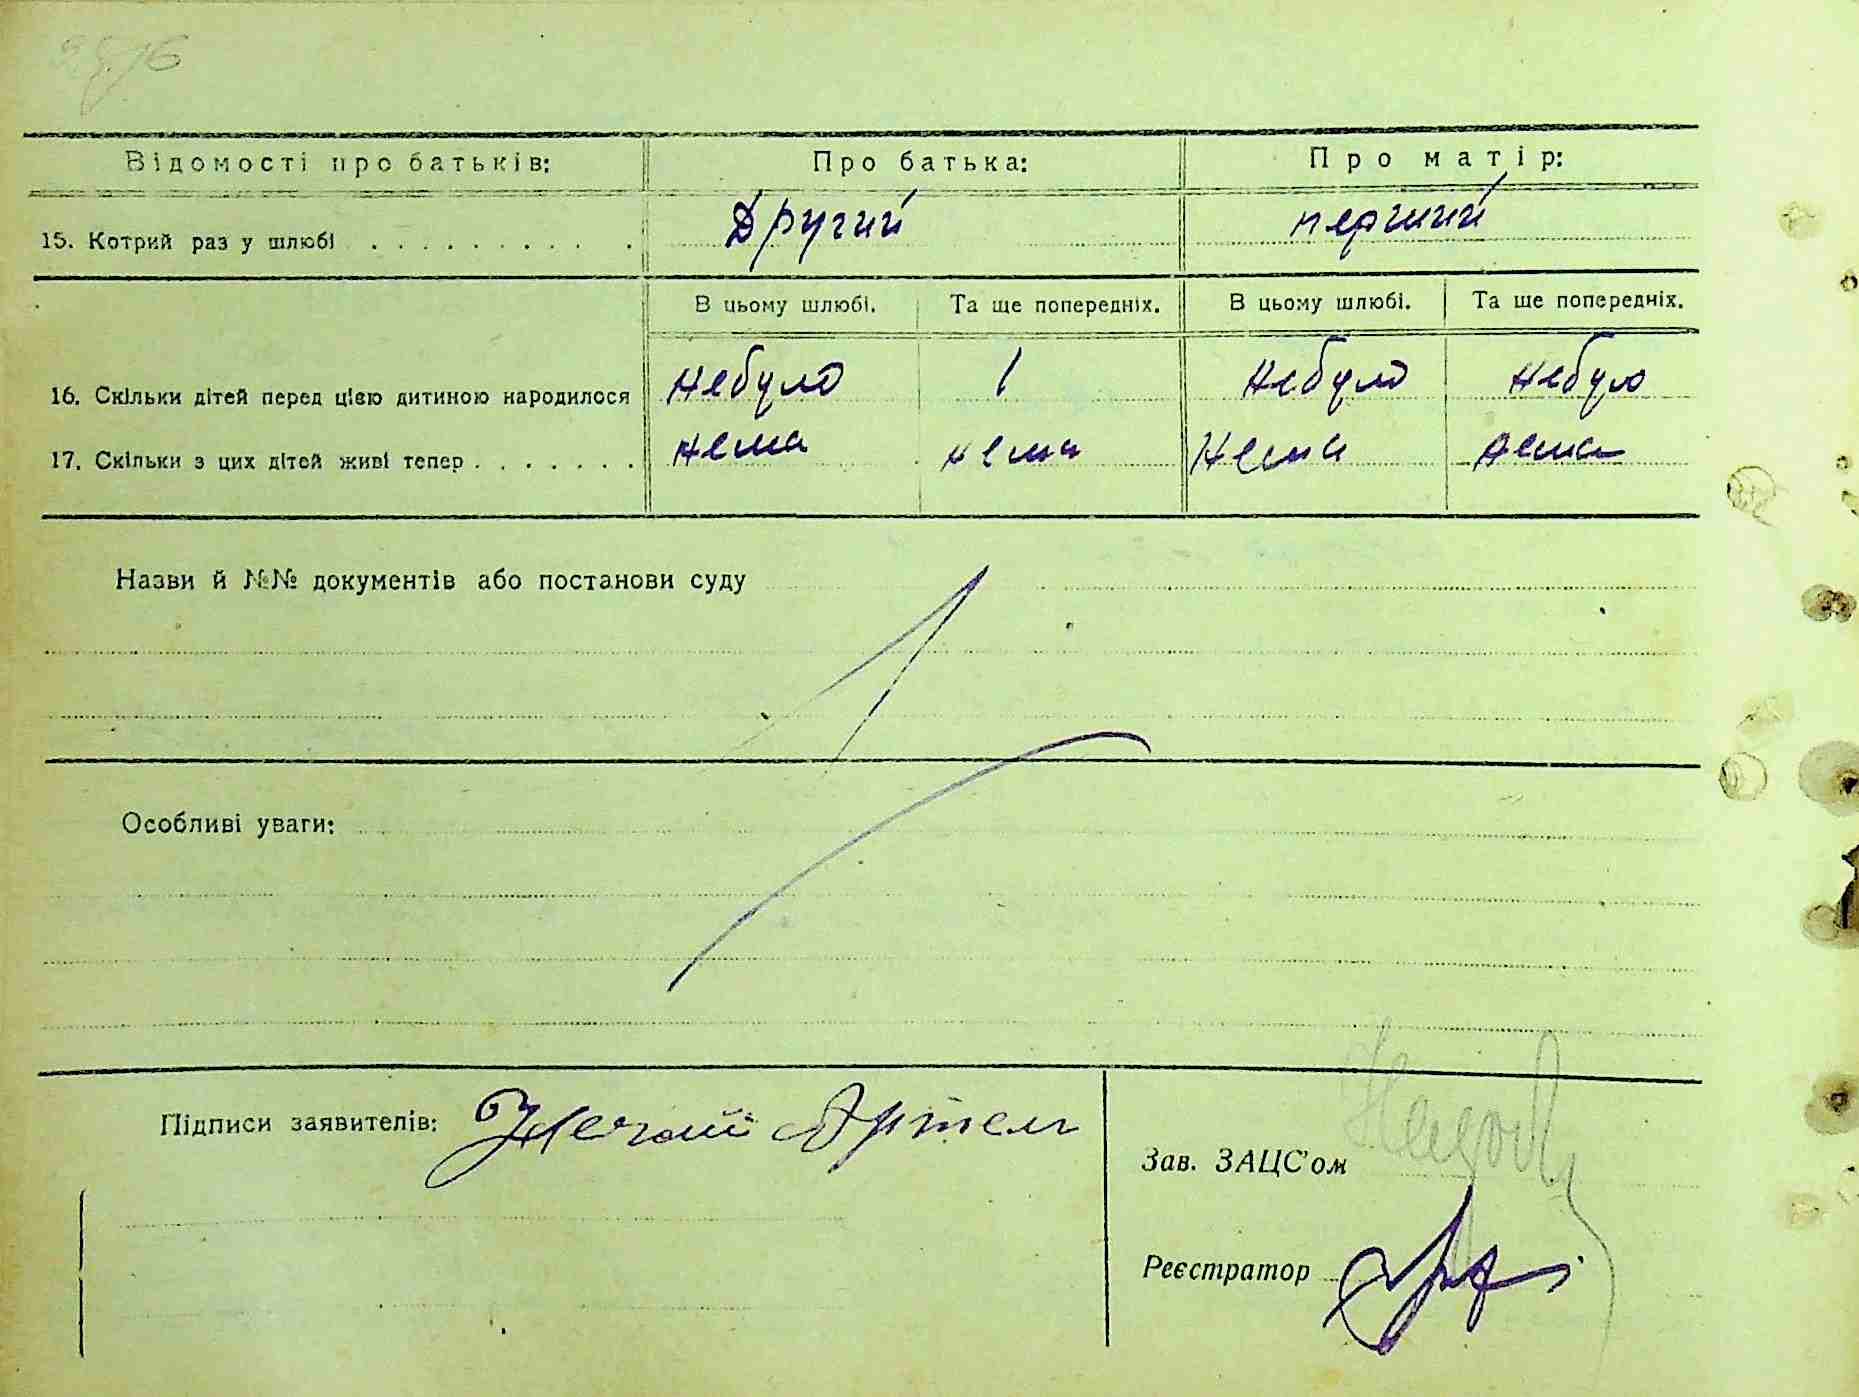 Відомості про батьків: Про батька: Про матір:
15. Котрий раз у шлюбі Другий перший
В цьому шлюбі. Та ще попередніх. В цьому шлюбі. Та ще попередніх.
16. Скільки дітей перед цією дитиною народилося небуло 1 небуло небуло
17. Скільки з цих дітей живі тепер нема нема нема нема
Назви й №№ документів або постанови суду
Особливі уваги:
Підписи заявителів: Нечай Артем
Зав. ЗАЦС'ом
Реєстратор